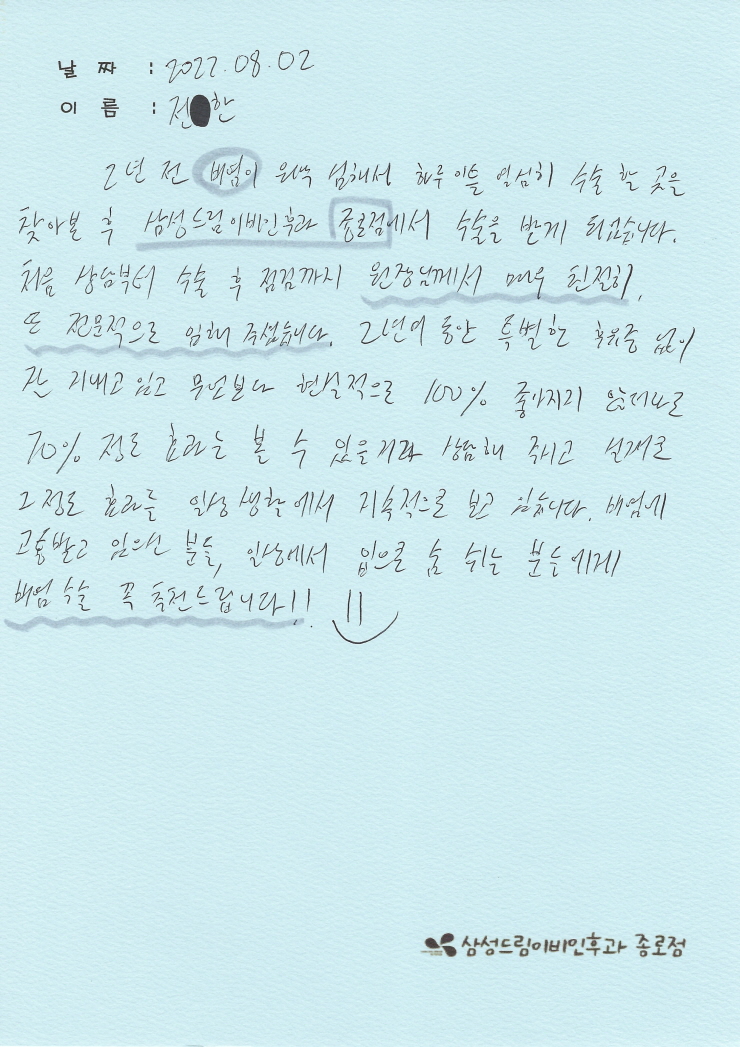 날 짜 : 2022.08.02
이 름 : 전 한
2년 전 비염이 워낙 심해서 하루 이틀 열심히 수술 할 곳을
찾아본 후 삼성드림이비인후과 종로점에서 수술을 받게 되었습니다.
처음 상담부터 수술 후 점검까지 원장님께서 매우 친절히,
또 전문적으로 임해 주셨습니다. 2년여 동안 특별한 후유증 없이
잘 지내고 있고 무엇보다 현실적으로 100% 좋아지지 않더라도
70% 정도 효과는 볼 수 있을거라 상담해 주시고 실제로
그 정도 효과를 일상 생활에서 지속적으로 보고 있습니다. 비염에
고통받고 있으신 분들, 일상에서 입으로 숨 쉬는 분들에게
비염 수술 꼭 추천드립니다!!
삼성드림이비인후과 종로점